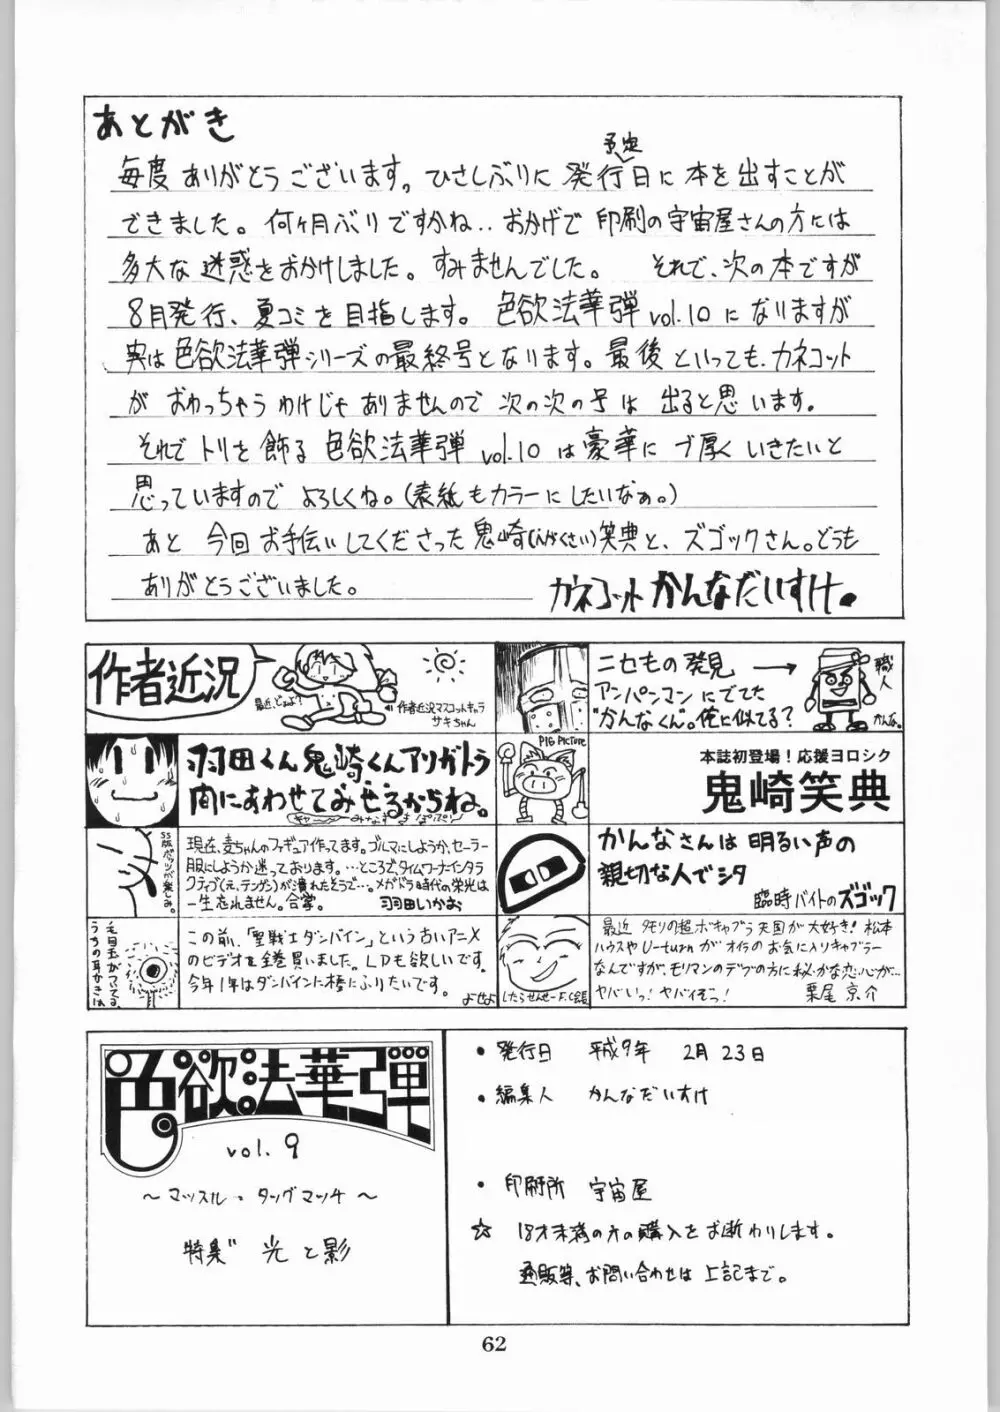 あとがき
予定
毎度ありがとうございます。ひさしぶりに発行日に本を出すことが
できました。何ヶ月ぶりですかね‥おかげで印刷の宇宙屋さんの方には
多大な迷惑をおかけしました。すみませんでした。 それで、次の本ですが
8月発行、夏コミを目指します。色欲法華弾vol.10になりますが
実は色欲法華弾シリーズの最終号となります。最後といっても、カネコット
がおわっちゃうわけじゃありませんので次の次の号は出ると思います。
それでトリを飾る色欲法華弾vol.10は豪華にブ厚くいきたいと
思っていますのでよろしくね。(表紙もカラーにしたいなぁ。)
あと今回お手伝いしてくださった鬼崎笑典と、ズゴックさん。どうも
ありがとうございました。
カネコットかんなだいすけ。
作者近況
最近、どぉよ?
作者近況マスコットキャラ
サキちゃん
ニセもの発見 →
アンパンマンにでてた
"かんなくん"。俺に似てる?
職人
かんな。
羽田くん鬼崎くんアリガトう
間にあわせてみせるからね。
PIG PICTURE
本誌初登場!応援ヨロシク
鬼崎笑典
現在、麦ちゃんのフィギュア作ってます。ゴルマにしようか、セーラー
服にしようか迷っております。…ところで、タイムワーナーインタラ
クティブ(え、テンゲン)が潰れたそうで…。メガドラ時代の栄光は
一生忘れません。合掌。 羽田いかお
かんなさんは明るい声の
親切な人でシタ
臨時バイトのズゴック
目玉がついてる
うちの耳かきは
この前、「聖戦士ダンバイン」という古いアニメ
のビデオを全巻買いました。LDも欲しいです。
今年1年はダンバインに棒にふりたいです。
よせよ
したらせんせーF.C会長
最近 タモリの超ボキャブラ天国が大好き!松本
ハウスやU-turnがオイラのお気に入りキャブラー
なんですが、モリマンのデブの方に秘かな恋心が…
ヤバいっ!ヤバイぞっ! 栗尾 京介
色欲法華弾
vol.9
〜マッスル・タッグマッチ〜
特集 光と影
・発行日 平成9年 2月23日
・編集人 かんなだいすけ
・印刷所 宇宙屋
☆ 18才未満の方の購入をお断わりします。
通販等、お問い合わせは上記まで。
62